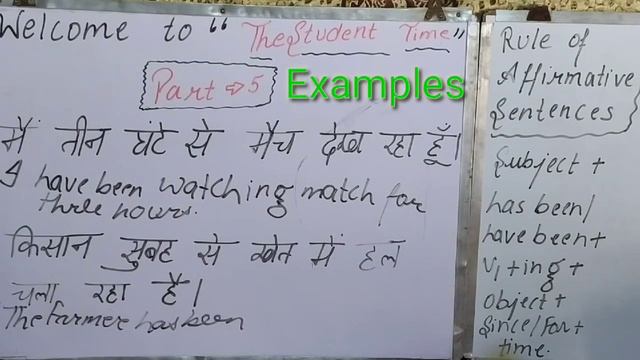 Welcome to "The Student Time"
Part ⇒ 5
Examples
मैं तीन घंटे से मैच देख रहा हूँ।
I have been watching match for
three hours.
किसान सुबह से खेत में हल
चला रहा है।
The farmere has been
Rule of
Affirmative
Sentences
Subject +
has been/
have been +
V₁ + ing +
object +
Since/For +
time.